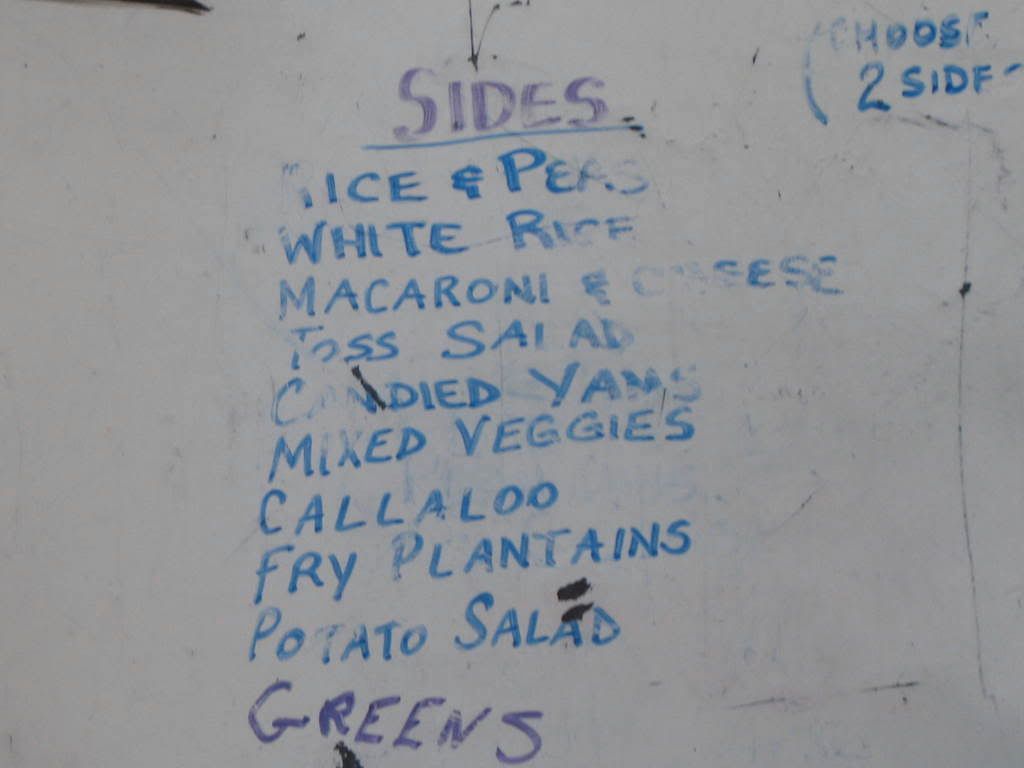 (CHOOSE
2 SIDE
SIDES
RICE & PEAS
WHITE RICE
MACARONI & CHEESE
TOSS SALAD
CANDIED YAMS
MIXED VEGGIES
CALLALOO
FRY PLANTAINS
POTATO SALAD
GREENS